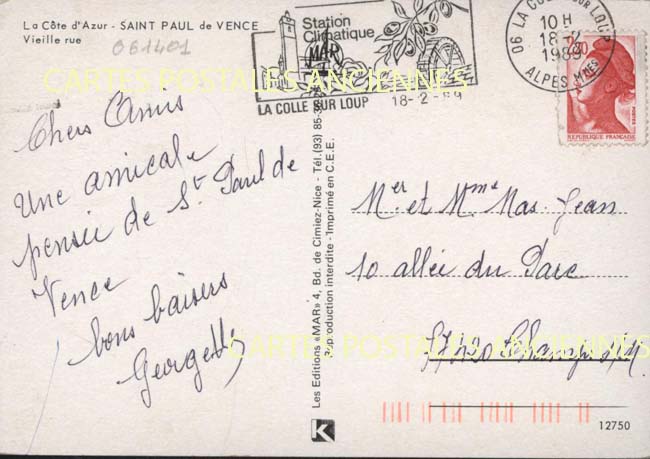 La Côte d'Azur - SAINT PAUL de VENCE
Vieille rue
061401
Station
Climatique
MAR
LA COLLE SUR LOUP
18-2-89
06 LA COLLE SUR LOUP
10 H
18-2
1989
ALPES MMES
2,20
POSTES
REPUBLIQUE FRANÇAISE
CARTES POSTALES ANCIENNES
Chers Amis
Une amicale
pensée de St Paul de
Vence
bons baisers
Georgette
Les Editions «MAR» 4, Bd. de Cimiez-Nice - Tél. (93) 85-3
Reproduction interdite - Imprimé en C.E.E.
Mer et Mme Mas Jean
10 allée du Parc
CARTES POSTALES ANCIENNES
K
12750